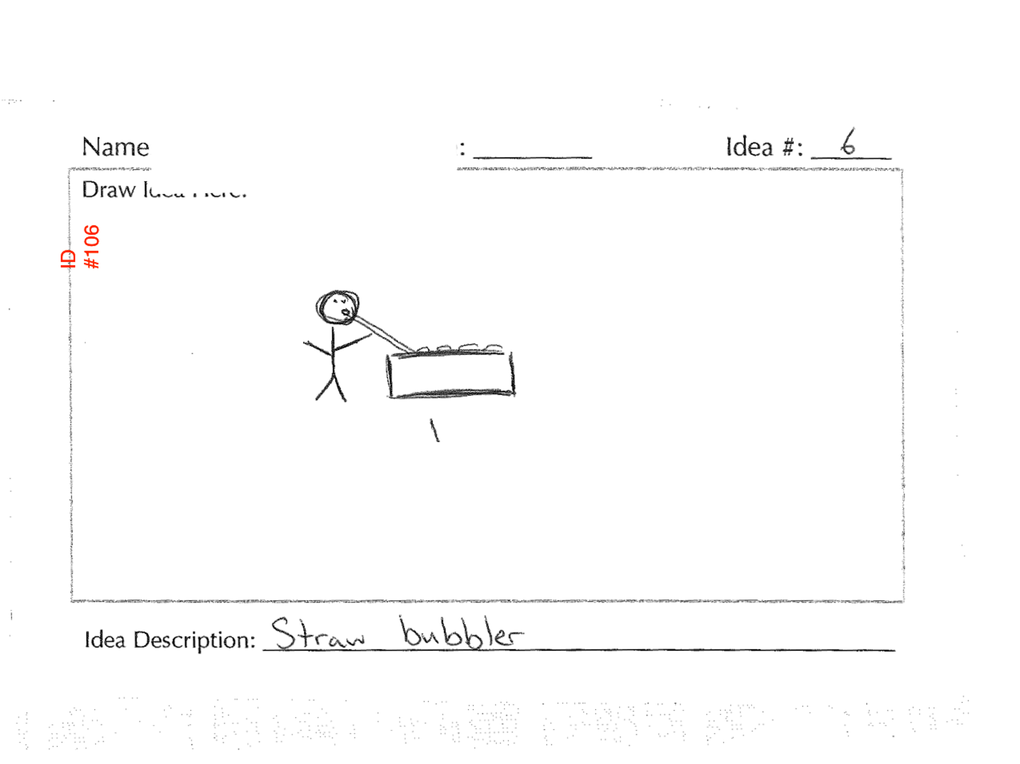 Name : Idea #: 6
Draw
ID
#106
Idea Description: Straw bubbler